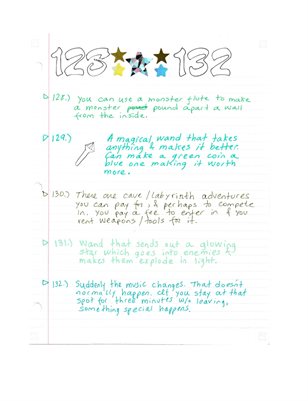 128 132
128.) You can use a monster flute to make
a monster pound apart a wall
from the inside.
129.) A magical wand that takes
anything & makes it better.
Can make a green coin a
blue one making it worth
more.
130.) There are cave/labyrinth adventures
you can pay for & perhaps to compete
in. You pay a fee to enter in & you
rent weapons/tools for it.
131.) Wand that sends out a glowing
star which goes into enemies &
makes them explode in light.
132.) Suddenly the music changes. That doesn't
normally happen. If you stay at that
spot for three minutes w/o leaving,
something special happens.